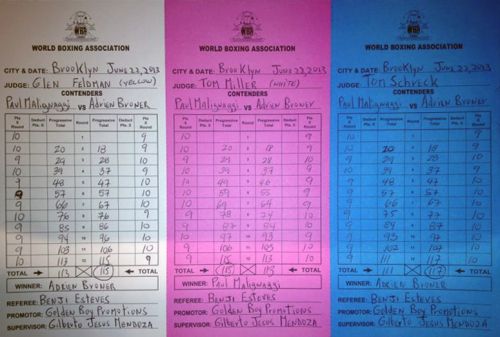 WORLD BOXING ASSOCIATION
CITY & DATE: Brooklyn June 22, 2013
JUDGE: Glen Feldman (Yellow)
CONTENDERS
Paul Malignaggi VS Adrien Broner
Pts X Round Deduct Pts. X Progressive Total Round Progressive Total Deduct Pts. X Pts X Round
10 1 9
10 20 2 18 9
9 29 3 28 10
10 39 4 37 9
9 48 5 47 10
9 57 6 57 10
9 66 7 67 10
10 76 8 76 9
9 85 9 86 10
9 94 10 96 10
9 103 11 106 10
10 113 12 115 9
TOTAL 113 115 TOTAL
WINNER: Adrien Broner
REFEREE: Benji Esteves
PROMOTOR: Golden Boy Promotions
SUPERVISOR: Gilberto Jesus Mendoza
WORLD BOXING ASSOCIATION
CITY & DATE: Brooklyn June 22, 2013
JUDGE: Tom Miller (White)
CONTENDERS
Paul Malignaggi VS Adrien Broner
Pts X Round Deduct Pts. X Progressive Total Round Progressive Total Deduct Pts. X Pts X Round
10 1 9
10 20 2 18 9
9 29 3 28 10
10 39 4 37 9
10 49 5 46 9
10 59 6 55 9
10 69 7 64 9
9 78 8 74 10
9 87 9 84 10
10 97 10 93 9
9 106 11 103 10
9 115 12 113 10
TOTAL 115 113 TOTAL
WINNER: Paul Malignaggi
REFEREE: Benji Esteves
PROMOTOR: Golden Boy Promotions
SUPERVISOR: Gilberto Jesus Mendoza
WORLD BOXING ASSOCIATION
CITY & DATE: Brooklyn June 22, 2013
JUDGE: Tom Schreck
CONTENDERS
Paul Malignaggi VS Adrien Broner
Pts X Round Deduct Pts. X Progressive Total Round Progressive Total Deduct Pts. X Pts X Round
10 1 9
10 20 2 18 9
9 29 3 28 10
10 39 4 37 9
9 48 5 47 10
9 57 6 57 10
9 66 7 67 10
9 75 8 77 10
9 84 9 87 10
9 93 10 97 10
9 102 11 107 10
9 111 12 117 10
TOTAL 111 117 TOTAL
WINNER: Adrien Broner
REFEREE: Benji Esteves
PROMOTOR: Golden Boy Promotions
SUPERVISOR: Gilberto Jesus Mendoza